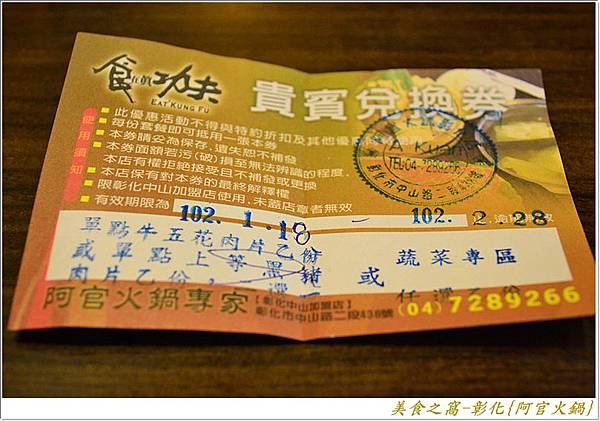 食在真功夫
EAT KUNG FU
貴賓兌換券
使用須知
■此優惠活動不得與特約折扣及其他優
■每份套餐即可抵用一張本券
■本券請妥為保存,遺失恕不補發
■本券面額若污(破)損至無法辨識的程度,
本店有權拒絕接受且不補發或更換
■本店保有對本券的最終解釋權
■限彰化中山加盟店使用,未蓋店章者無效
■有效期限為 102. 1. 18 – 102. 2. 28
A Kuan
TEL:04-7289266
彰化市中山路二段
單點牛五花肉片乙份
或單點上等黑豬
肉片乙份,
或
蔬菜專區
任選乙份
阿官火鍋專家
【彰化中山加盟店】
彰化市中山路二段438號
(04)7289266
美食之窩-彰化{阿官火鍋}